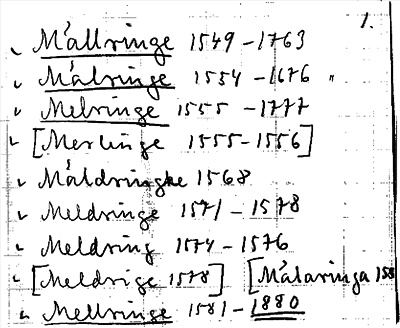 1.
Mållringe 1549-1763
Målringe 1554-1676 "
Melringe 1555-1777
[Merlinge 1555-1556]
Måldringke 1568
Meldringe 1571-1578
Meldring 1574-1576
[Meldrige 1578] [Målaringa 158
Mellringe 1581-1880